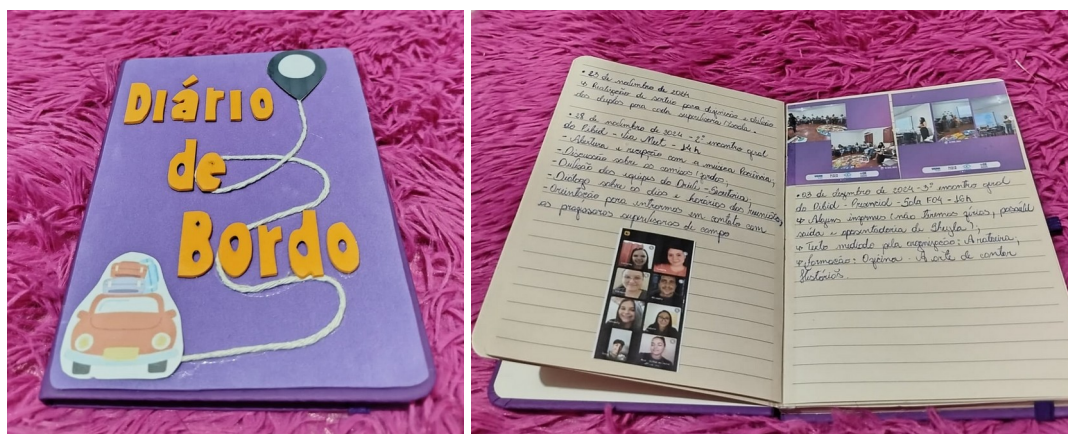 Diário
de
Bordo
• 25 de novembro de 2024
↳ Realização de sorteio para definição e divisão
das duplas para cada supervisora/Escola.
• 28 de novembro de 2024 - 2º encontro geral
do Pibid - Via Meet - 14h
- Abertura e recepção com a música
- Discussão sobre os
- Divisão das equipes do
- Diálogo sobre os dias e horários das reuniões;
- Orientação para entrarmos em contato com
as professoras supervisoras de campo
• 03 de dezembro de 2024 - 3º encontro geral
do Pibid - Presencial - Sala F04 - 16h
↳ Alguns informes (não teremos férias, possível
saída e aposentadoria de
↳ Texto mediado pela
↳ Formação: Oficina - A arte de contar
histórias